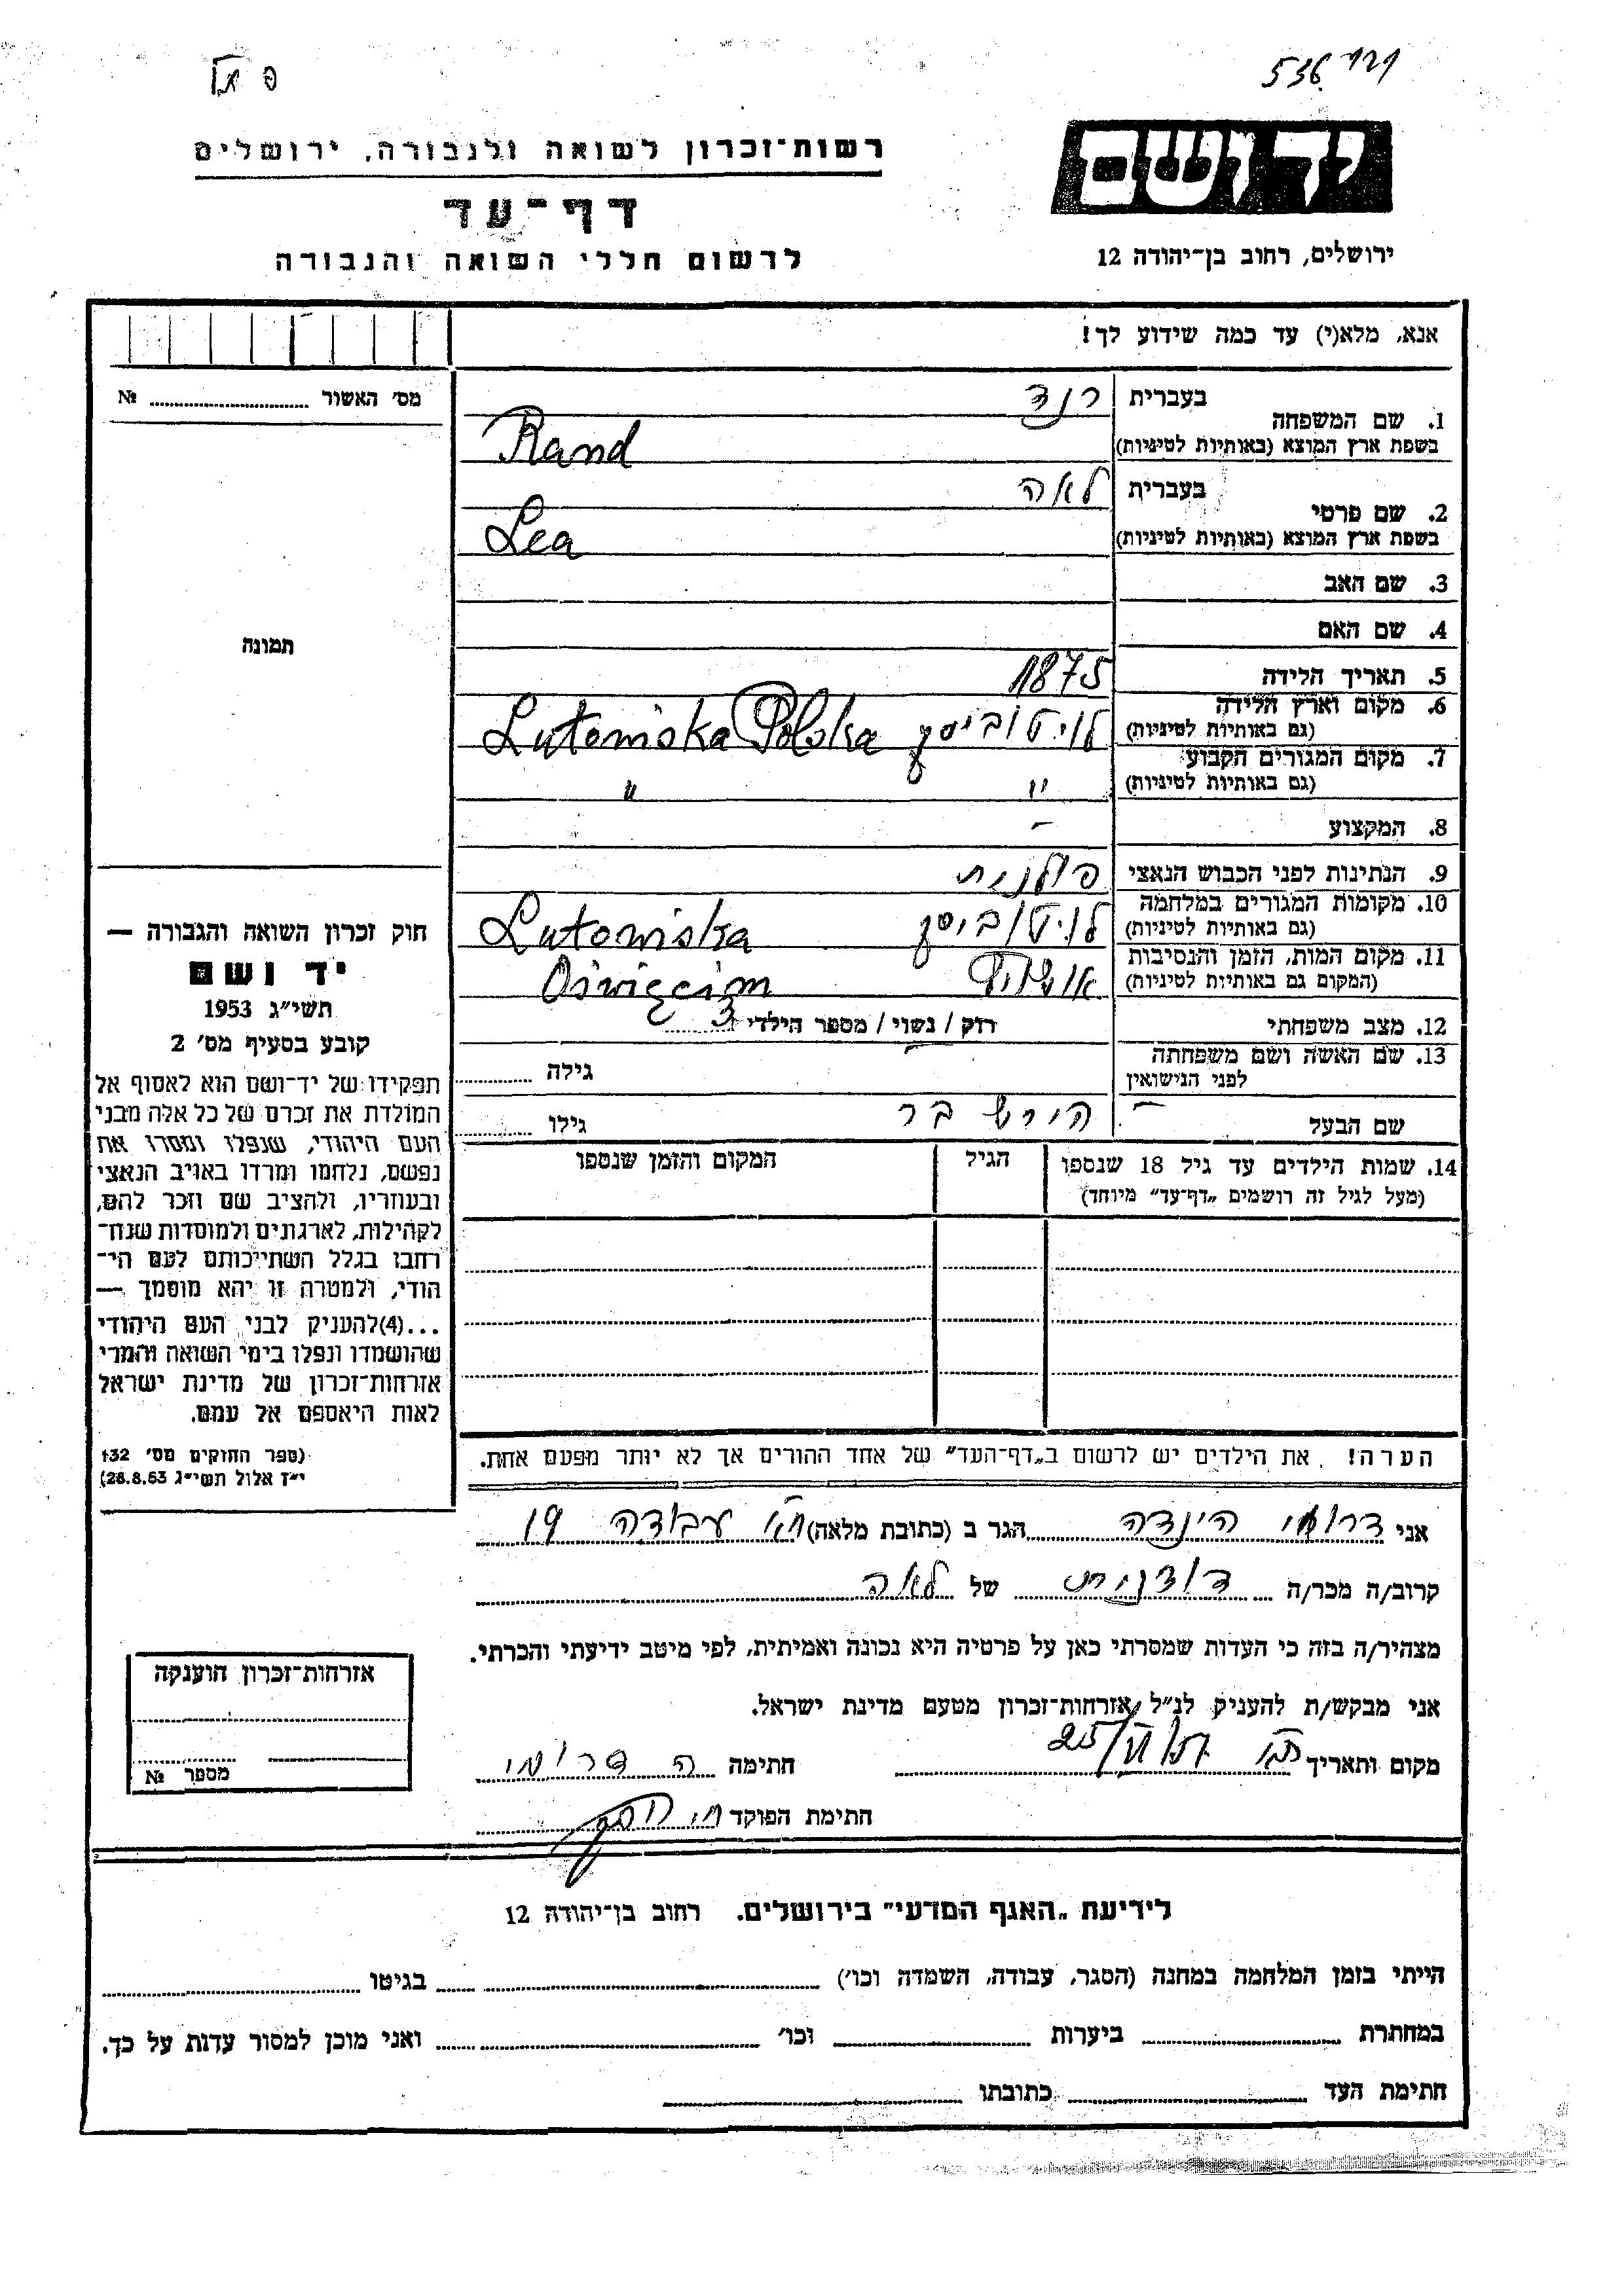 536
רשות-זכרון לשואה ולגבורה, ירושלים
דף-עד
לרשום חללי השואה והגבורה
יד ושם
ירושלים, רחוב בן-יהודה 12
אנא, מלא(י) עד כמה שידוע לך!
מס׳ האשור № 
תמונה
1. שם המשפחה בעברית רנד
בשפת ארץ המוצא (באותיות לטיניות) Rand
2. שם פרטי בעברית לאה
בשפת ארץ המוצא (באותיות לטיניות) Lea
3. שם האב
4. שם האם
5. תאריך הלידה 1875
6. מקום וארץ הלידה (גם באותיות לטיניות) Lutowiska Polska
7. מקום המגורים הקבוע (גם באותיות לטיניות) " "
8. המקצוע -
9. הנתינות לפני הכבוש הנאצי פולנית
10. מקומות המגורים במלחמה (גם באותיות לטיניות) Lutowiska
11. מקום המות, הזמן והנסיבות (המקום גם באותיות לטיניות) Oświęcim
12. מצב משפחתי רוק / נשוי / מספר הילדי 3
13. שם האשה ושם משפחתה לפני הנישואין גילה
שם הבעל הירש בר גילו
14. שמות הילדים עד גיל 18 שנספו הגיל המקום והזמן שנספו
(מעל לגיל זה רושמים „דף-עד" מיוחד)
חוק זכרון השואה והגבורה —
יד ושם
תשי״ג 1953
קובע בסעיף מס׳ 2
תפקידו של יד-ושם הוא לאסוף אל
המולדת את זכרם של כל אלה מבני
העם היהודי, שנפלו ומסרו את
נפשם, נלחמו ומרדו באויב הנאצי
ובעוזריו, ולהציב שם וזכר להם,
לקהילות, לארגונים ולמוסדות שנח-
רבו בגלל השתייכותם לעם הי-
הודי, ולמטרה זו יהא מוסמך —
...(4)להעניק לבני העם היהודי
שהושמדו ונפלו בימי השואה והמרי
אזרחות-זכרון של מדינת ישראל
לאות היאספם אל עמם.
(ספר החוקים מס׳ 132
י״ז אלול תשי״ג 28.8.53)
הערה! את הילדים יש לרשום ב„דף-העד" של אחד ההורים אך לא יותר מפעם אחת.
אני דרומי הינדה הגר ב (כתובת מלאה) ת״א עבודה 19
קרוב/ה מכר/ה של לאה
מצהיר/ה בזה כי העדות שמסרתי כאן על פרטיה היא נכונה ואמיתית, לפי מיטב ידיעתי והכרתי.
אני מבקש/ת להעניק לנ״ל אזרחות-זכרון מטעם מדינת ישראל.
מקום ותאריך חתימה ה דרומי
חתימת הפוקד
אזרחות-זכרון הוענקה
מספר №
לידיעת „האגף המדעי" בירושלים. רחוב בן-יהודה 12
הייתי בזמן המלחמה במחנה (הסגר, עבודה, השמדה וכו׳) בגיטו
במחתרת ביערות וכו׳ ואני מוכן למסור עדות על כך.
חתימת העד כתובתו